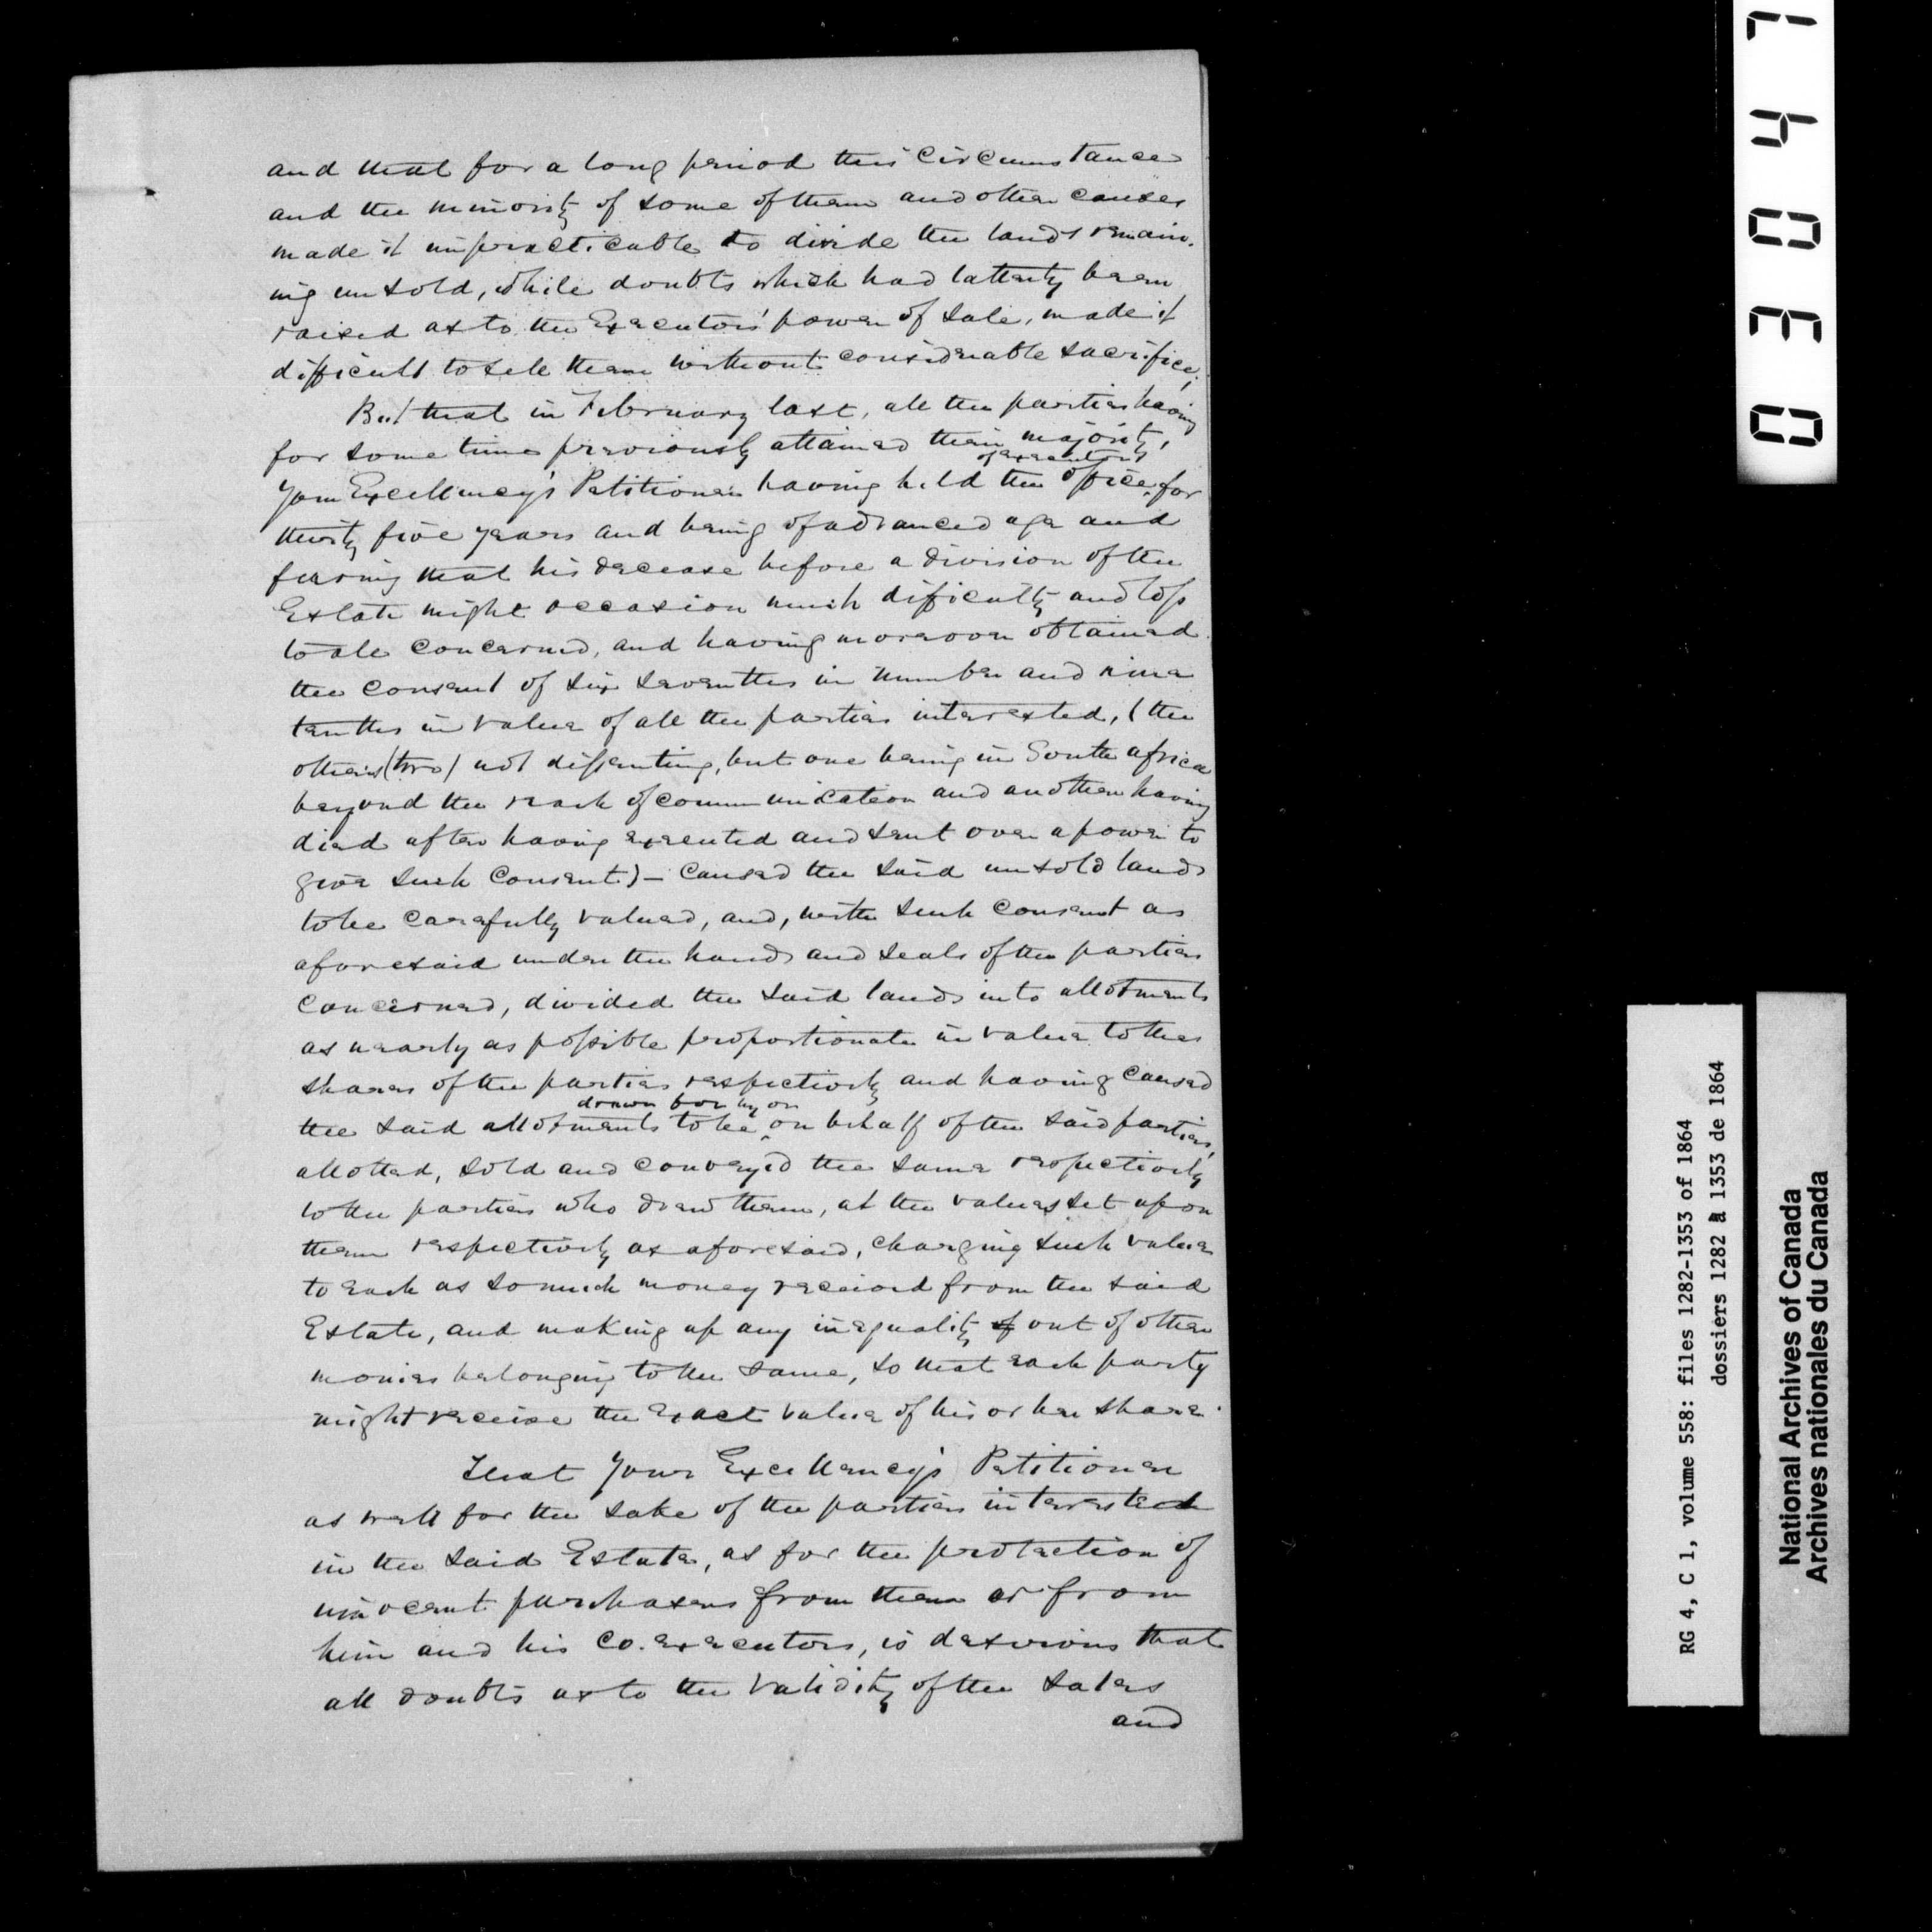 and that for a long period this Circumstance
and the minority of some of them and other causes
made it impracticable to divide the lands remain-
ing unsold, while doubts which had latterly been
raised as to the Executors' power of sale, made it
difficult to sell them without considerable sacrifice;
But that in February last, all the parties having
for some time previously attained their majority,
of executors
Your Excellency's Petitioner having held the office for
thirty five years and being of advanced age and
fearing that his decease before a division of the
Estate might occasion much difficulty and loss
to all concerned, and having moreover obtained
the consent of six sevenths in number and nine
tenths in value of all the parties interested, (the
others (two) not dissenting, but one being in South Africa
beyond the reach of communication and another having
died after having executed and sent over a power to
give such Consent) – Caused the said unsold lands
to be carefully valued, and, with such Consent as
aforesaid under the hands and seals of the parties
Concerned, divided the said lands into allotments
as nearly as possible proportionate in value to the
shares of the parties respectively and having caused
drawn for by or
the said allotments to be on behalf of the said parties,
allotted, sold and conveyed the same respectively
to the parties who drew them, at the values set upon
them respectively as aforesaid, charging such value
to each as so much money received from the said
Estate, and making up any inequality of out of other
monies belonging to the same, so that each party
might receive the exact value of his or her share.
That Your Excellency's Petitioner
as well for the sake of the parties interested
in the said Estate, as for the protection of
innocent purchasers from them or from
him and his Co. executors, is desirous that
all doubts as to the validity of the sales
and
0304
RG 4, C 1, volume 558: files 1282-1353 of 1864
dossiers 1282 à 1353 de 1864
National Archives of Canada
Archives nationales du Canada